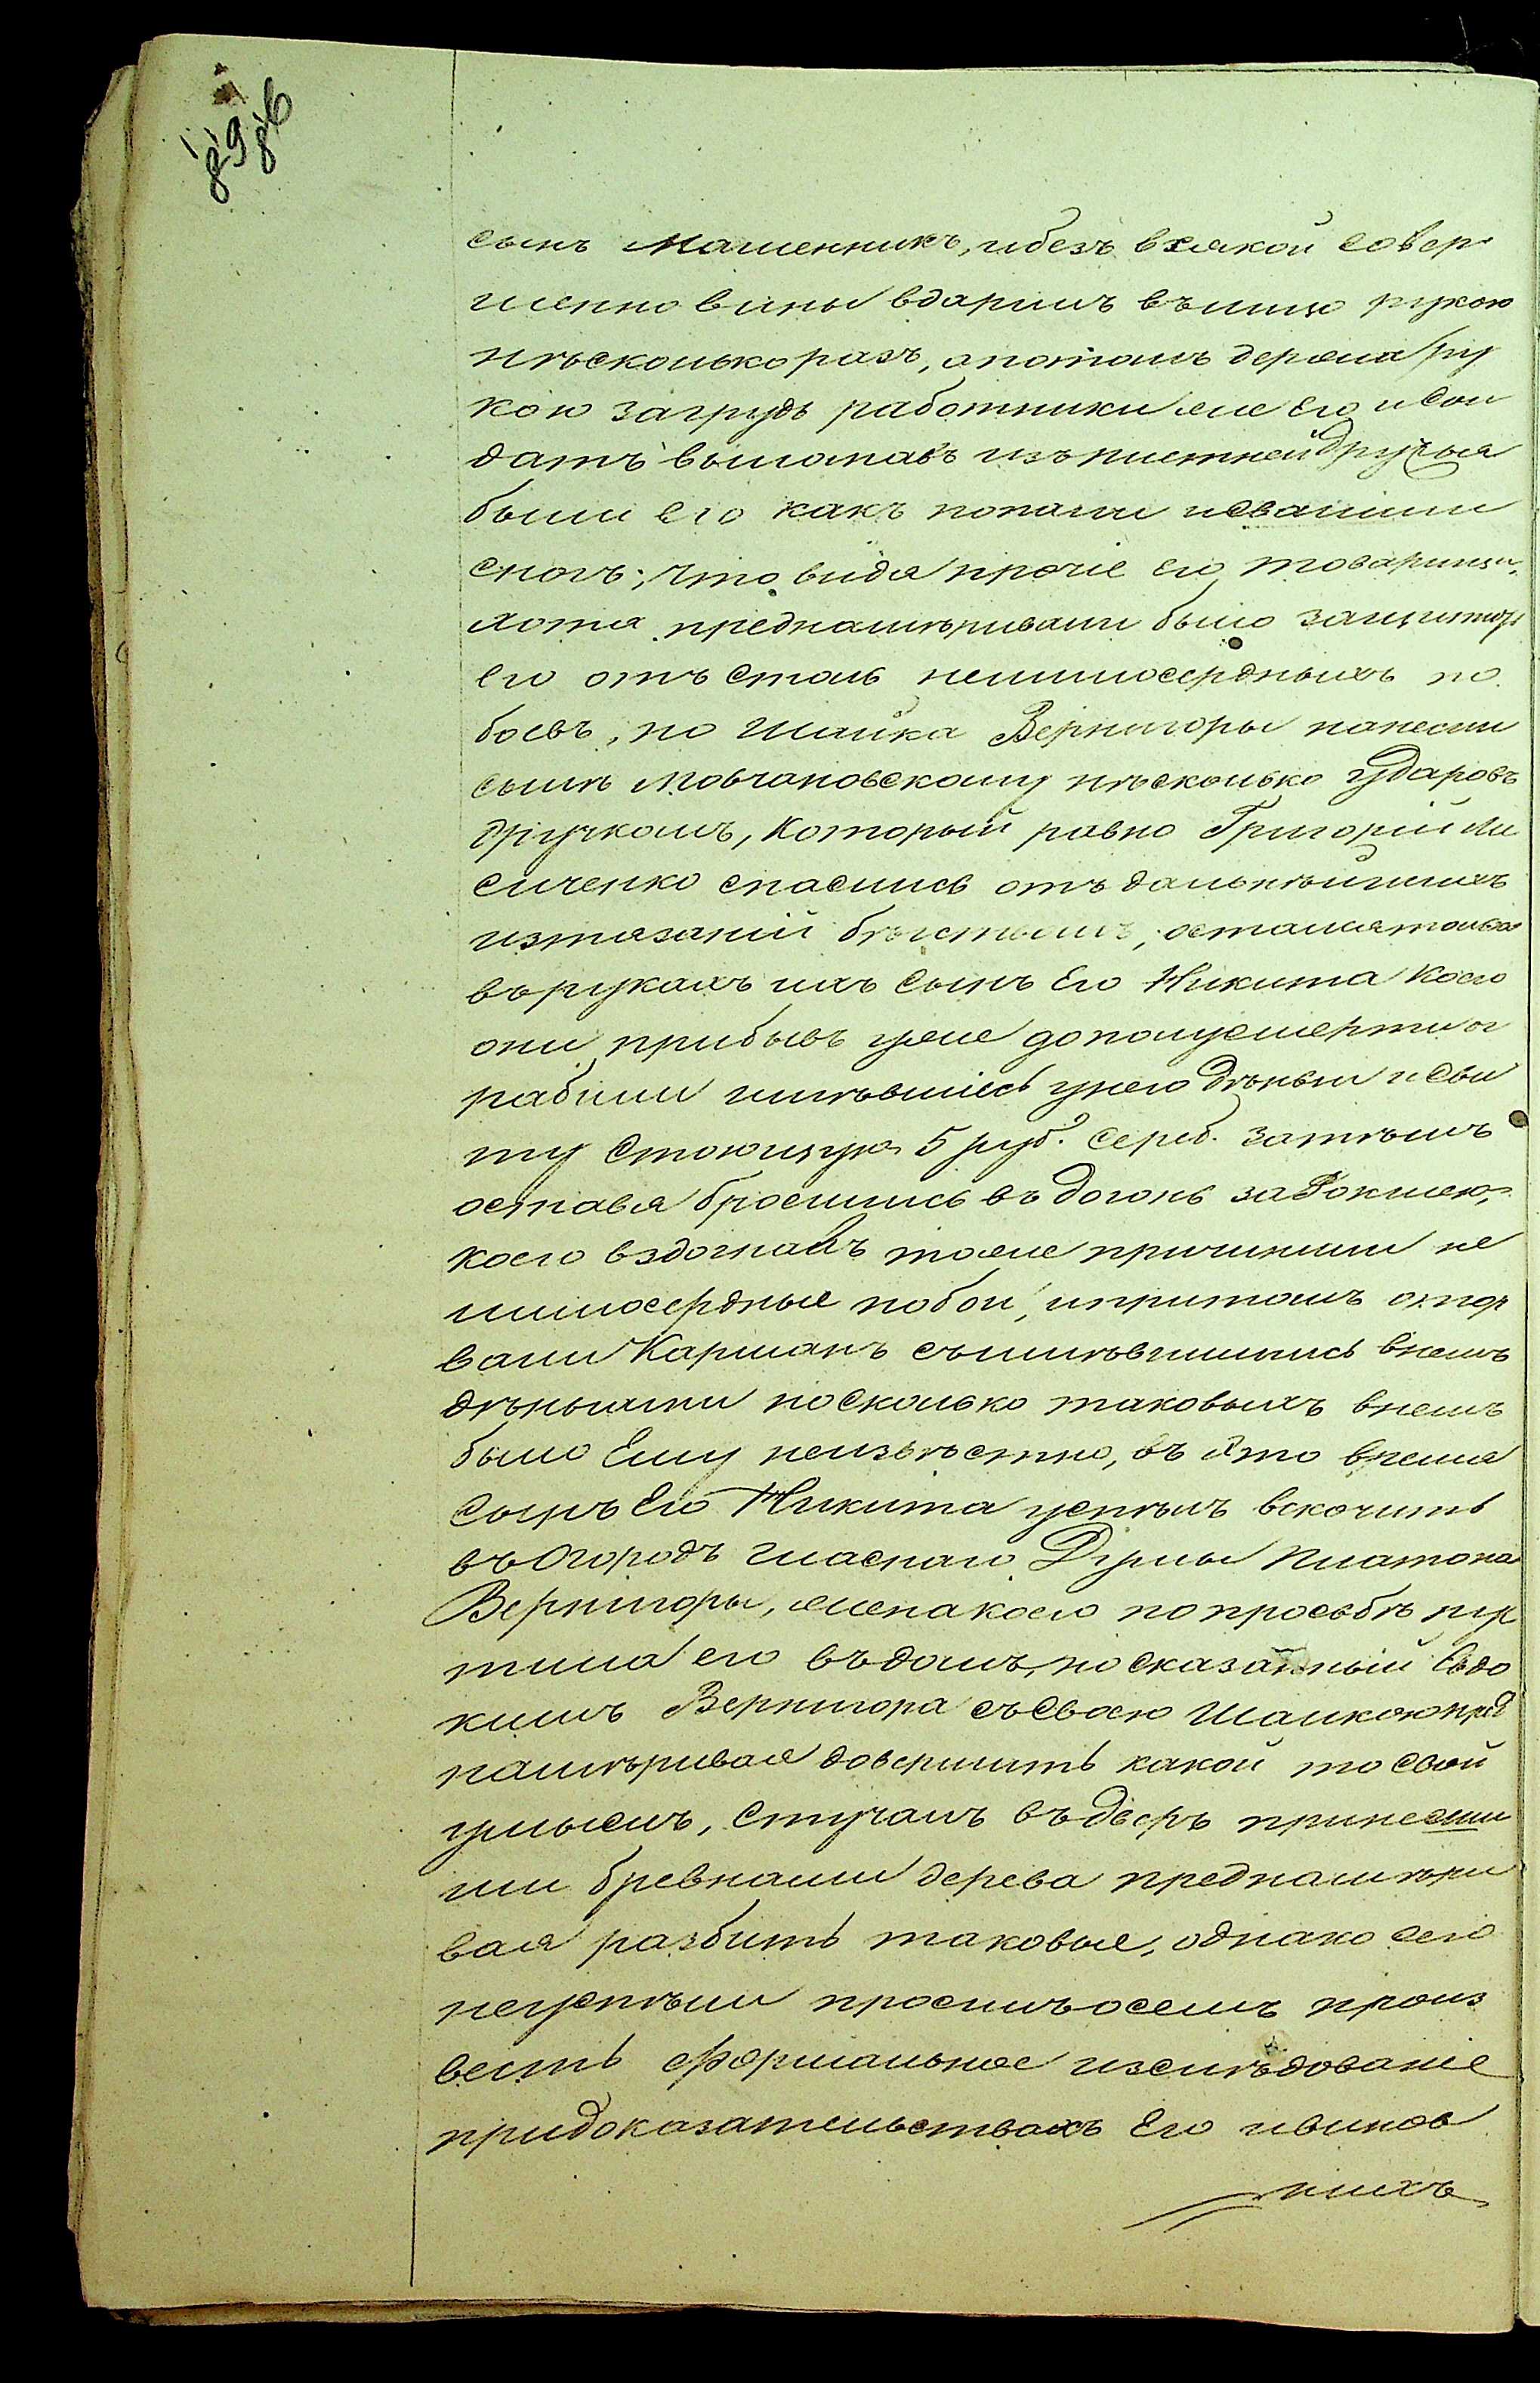 89
86
сынъ мошенникъ, ибезъ всякой совер
шенно вины вдарилъ вълицо рукою
нѣсколькоразъ, апотомъ держа ру
кою загрудь работники же его и сол
датъ выломавъ изъ плетней дручья
били его какъ попали исвалили
сногъ; что видя прочіе его товарищи,
хотя преднамѣривали было защитить
его отъ столь немилосердныхъ по
боевъ, но шайка Вернигоры нанесли
сыну Мовчановскому нѣсколько ударовъ
дручкомъ, который равно Григорій Ли
сиченко спаслись отъ дальнѣйшихъ
изтязаній бѣгствомъ, осталсятолько
върукахъ ихъ сынъ Его Никита коего
они прибывъ уже дополусмерти ог
рабили имѣвшіеся унего дѣньги и сви
ту стоющую 5 руб. сереб. затѣмъ
оставя бросились въ догонь за
коего вздогнавъ тоже причинили не
милосердные побои, ипритомъ отор
вали Карманъ съимѣвшимись внемъ
дѣньгами носколько таковыхъ внемъ
было Ему неизвѣстно, въ это время
сынъ Его Никита успѣлъ вскочить
въ Огородъ гласнаго Думы Платона
Вернигоры, жена коего попросьбѣ пу
стила его въдомъ, но сказанный Евдо
кимъ Вернигора съсвоею шайкою пред
намѣривая довершить какой то свой
умыселъ, стучалъ въдверь принесши
ми бревнами дерева преднамѣри
вая разбить таковые, однако сего
неуспѣли проситъ осемъ произ
весть формальное изслѣдованіе
придоказательствахъ Его ивинов
ныхъ